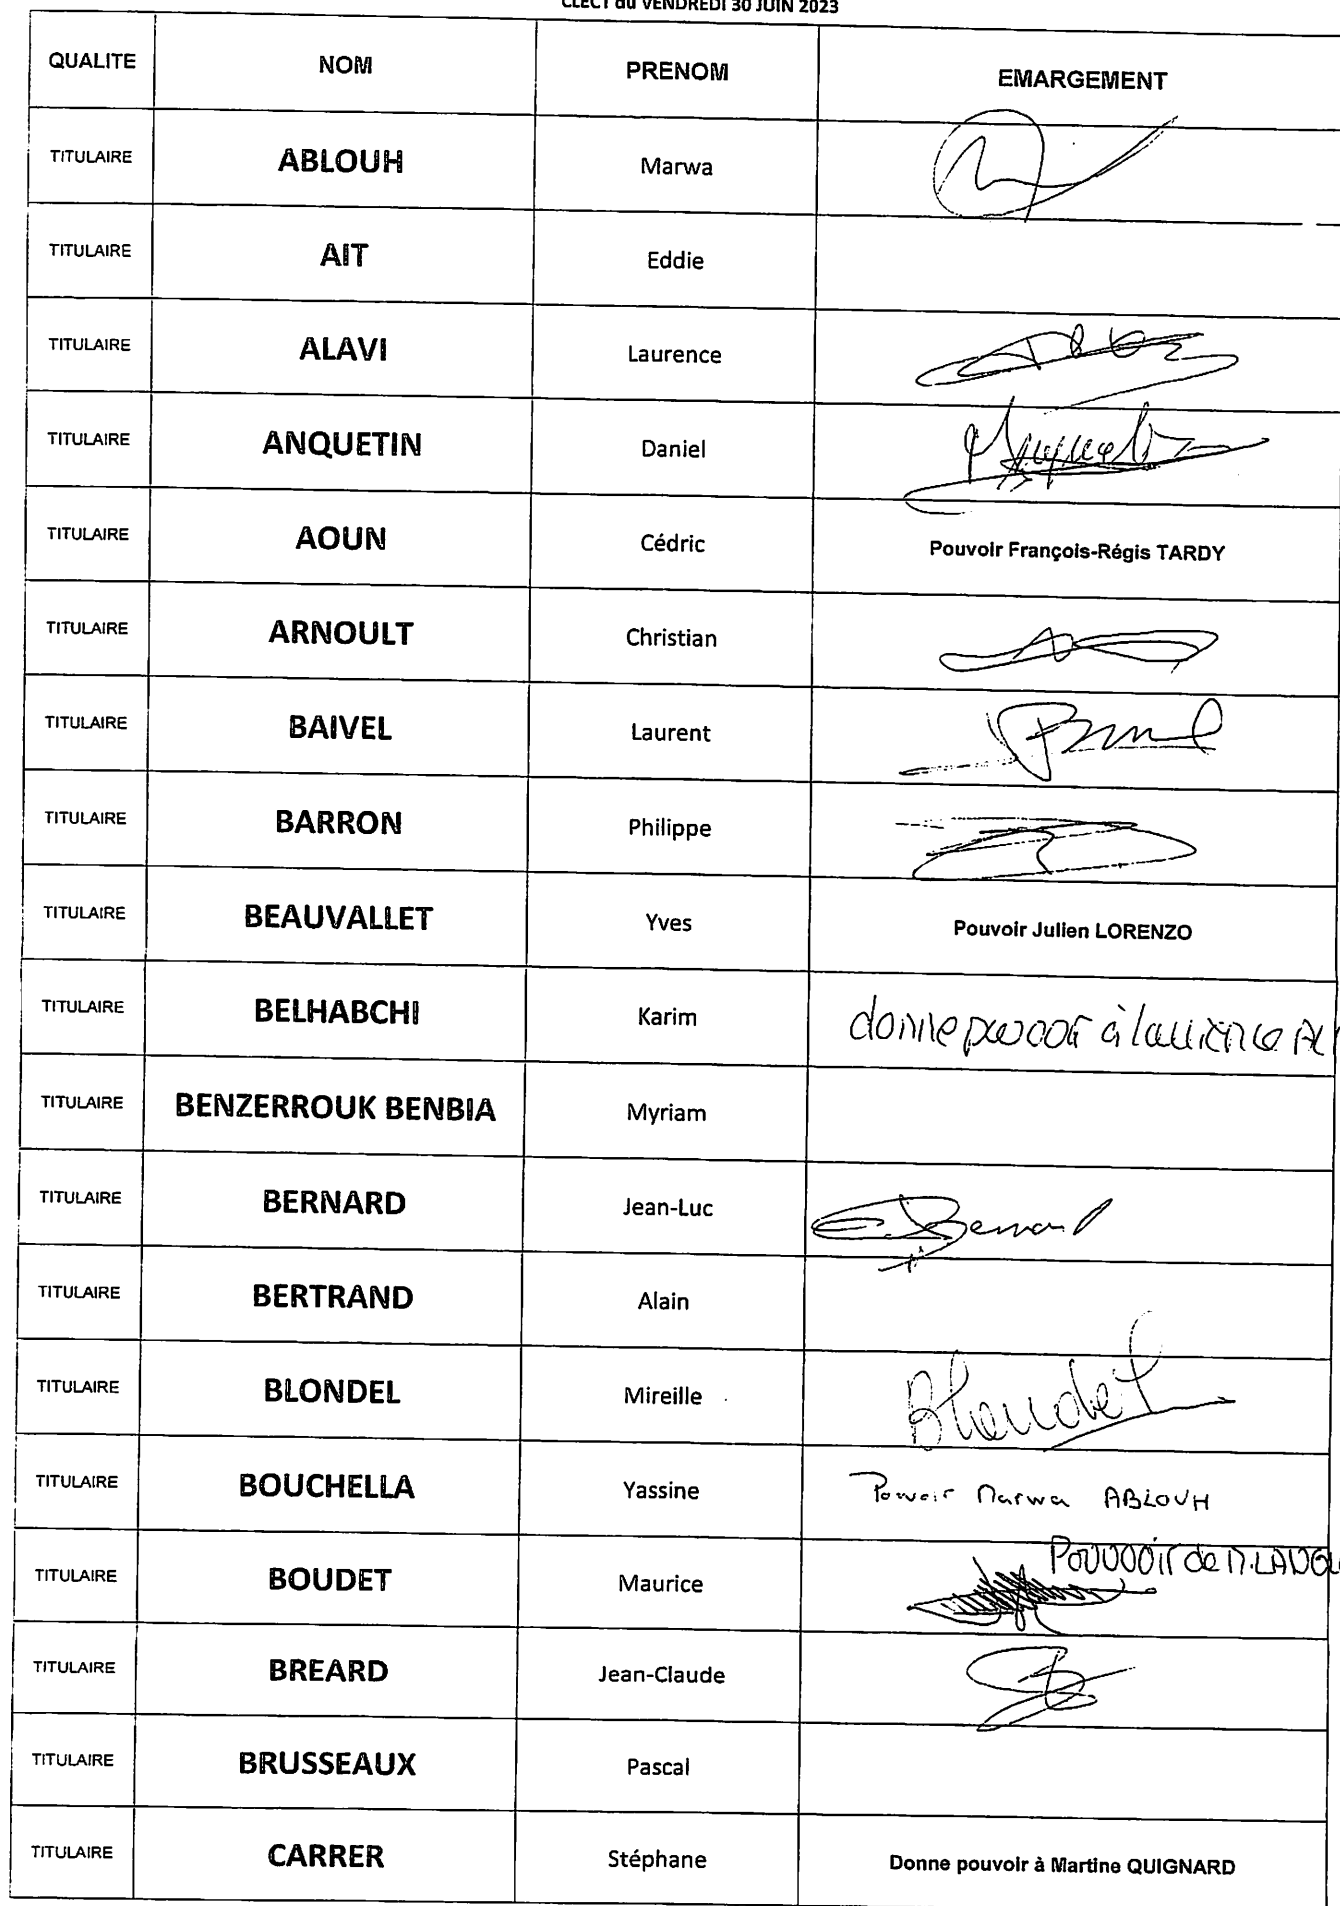 CLECT du VENDREDI 30 JUIN 2023
QUALITE NOM PRENOM EMARGEMENT
TITULAIRE ABLOUH Marwa
TITULAIRE AIT Eddie
TITULAIRE ALAVI Laurence
TITULAIRE ANQUETIN Daniel
TITULAIRE AOUN Cédric Pouvoir François-Régis TARDY
TITULAIRE ARNOULT Christian
TITULAIRE BAIVEL Laurent
TITULAIRE BARRON Philippe
TITULAIRE BEAUVALLET Yves Pouvoir Julien LORENZO
TITULAIRE BELHABCHI Karim donne pouvoir à Laurence AL
TITULAIRE BENZERROUK BENBIA Myriam
TITULAIRE BERNARD Jean-Luc Bernard
TITULAIRE BERTRAND Alain
TITULAIRE BLONDEL Mireille Blondel
TITULAIRE BOUCHELLA Yassine Pouvoir Marwa ABLOUH
TITULAIRE BOUDET Maurice Pouvoir de
TITULAIRE BREARD Jean-Claude
TITULAIRE BRUSSEAUX Pascal
TITULAIRE CARRER Stéphane Donne pouvoir à Martine QUIGNARD